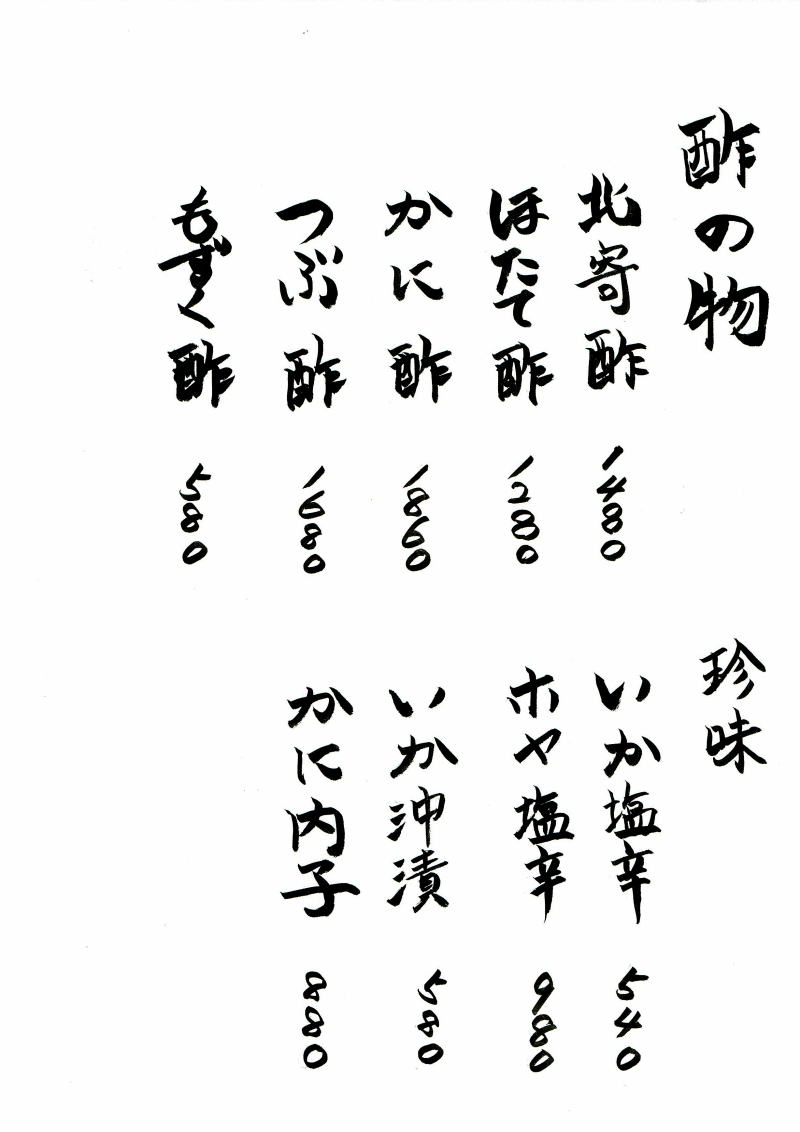 酢の物
北寄酢 1480
ほたて酢 1280
かに酢 1860
つぶ酢 1680
もずく酢 580
珍味
いか塩辛 540
ホヤ塩辛 980
いか沖漬 580
かに内子 880